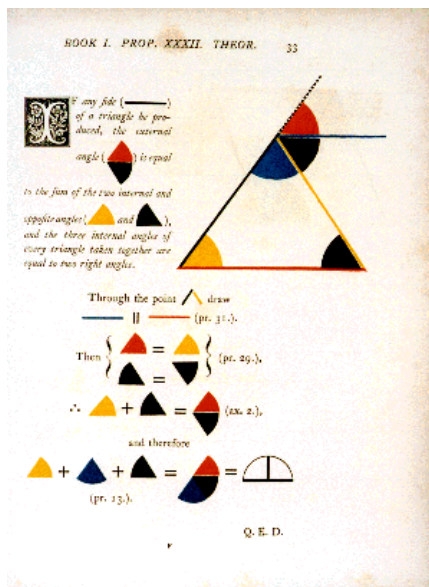 BOOK I. PROP. XXXII. THEOR. 33
IF any ſide ( )
of a triangle be pro-
duced, the external
angle ( ) is equal
to the ſum of the two internal and
oppoſite angles ( and ),
and the three internal angles of
every triangle taken together are
equal to two right angles.
Through the point draw
|| (pr. 31.).
Then { = } (pr. 29.),
{ = }
∴ + = (ax. 2.),
and therefore
+ + = =
(pr. 13.).
Q. E. D.
F